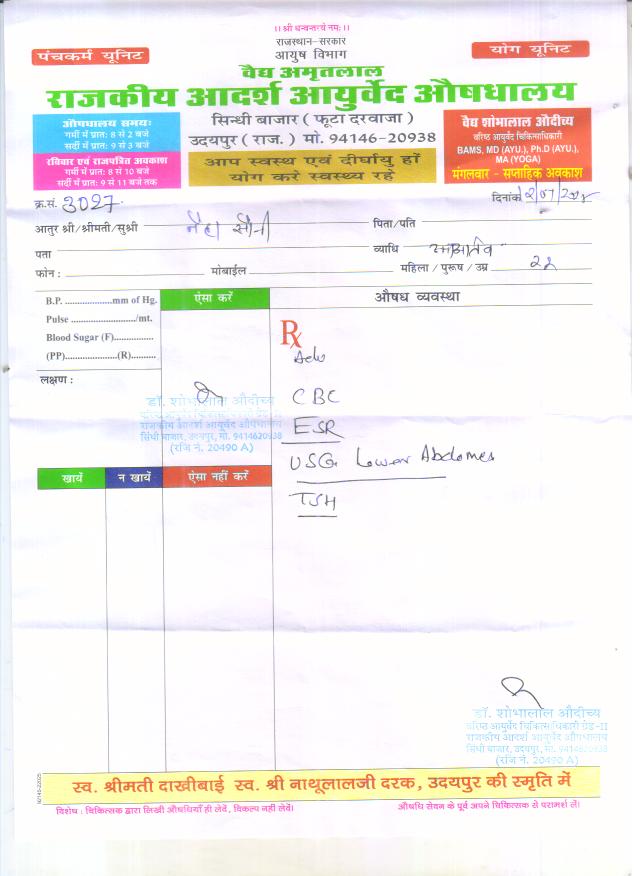 ।। श्री धन्वन्तरये नमः ।।
राजस्थान-सरकार
आयुष विभाग
पंचकर्म यूनिट
योग यूनिट
वैद्य अमृतलाल
राजकीय आदर्श आयुर्वेद औषधालय
औषधालय समयः
गर्मी में प्रातः 8 से 2 बजे
सर्दी में प्रातः 9 से 3 बजे
रविवार एवं राजपत्रित अवकाश
गर्मी में प्रातः 8 से 10 बजे
सर्दी में प्रातः 9 से 11 बजे तक
सिन्धी बाजार ( फूटा दरवाजा )
उदयपुर ( राज. ) मो. 94146-20938
आप स्वस्थ एवं दीर्घायु हों
योग करे स्वस्थ्य रहे
वैद्य शोभालाल औदीच्य
वरिष्ठ आयुर्वेद चिकित्साधिकारी
BAMS, MD (AYU.), Ph.D (AYU.),
MA (YOGA)
मंगलवार - सप्ताहिक अवकाश
क्र.सं. 3027
दिनांक
आतुर श्री/श्रीमती/सुश्री नेहा सोनी पिता/पति
पता व्याधि
फोन : मोबाईल महिला / पुरूष / उम्र 22
B.P. ....................mm of Hg.
Pulse .........................../mt.
Blood Sugar (F)................
(PP)......................(R)..........
लक्षण :
ऐसा करें
औषध व्यवस्था
Rx
Adv
CBC
ESR
USG Lower Abdomen
TSH
डॉ. शोभालाल औदीच्य
वरिष्ठ आयुर्वेद चिकित्साधिकारी ग्रेड-II
राजकीय आदर्श आयुर्वेद औषधालय
सिंधी बाजार, उदयपुर, मो. 9414620938
(रजि नं. 20490 A)
खायें
न खायें
ऐसा नहीं करें
डॉ. शोभालाल औदीच्य
वरिष्ठ आयुर्वेद चिकित्साधिकारी ग्रेड-II
राजकीय आदर्श आयुर्वेद औषधालय
सिंधी बाजार, उदयपुर, मो. 9414620938
(रजि नं. 20490 A)
स्व. श्रीमती दाखीबाई स्व. श्री नाथूलालजी दरक, उदयपुर की स्मृति में
विशेष : चिकित्सक द्वारा लिखी औषधियाँ ही लेवें, विकल्प नहीं लेवें।
औषधि सेवन के पूर्व अपने चिकित्सक से परामर्श लें।